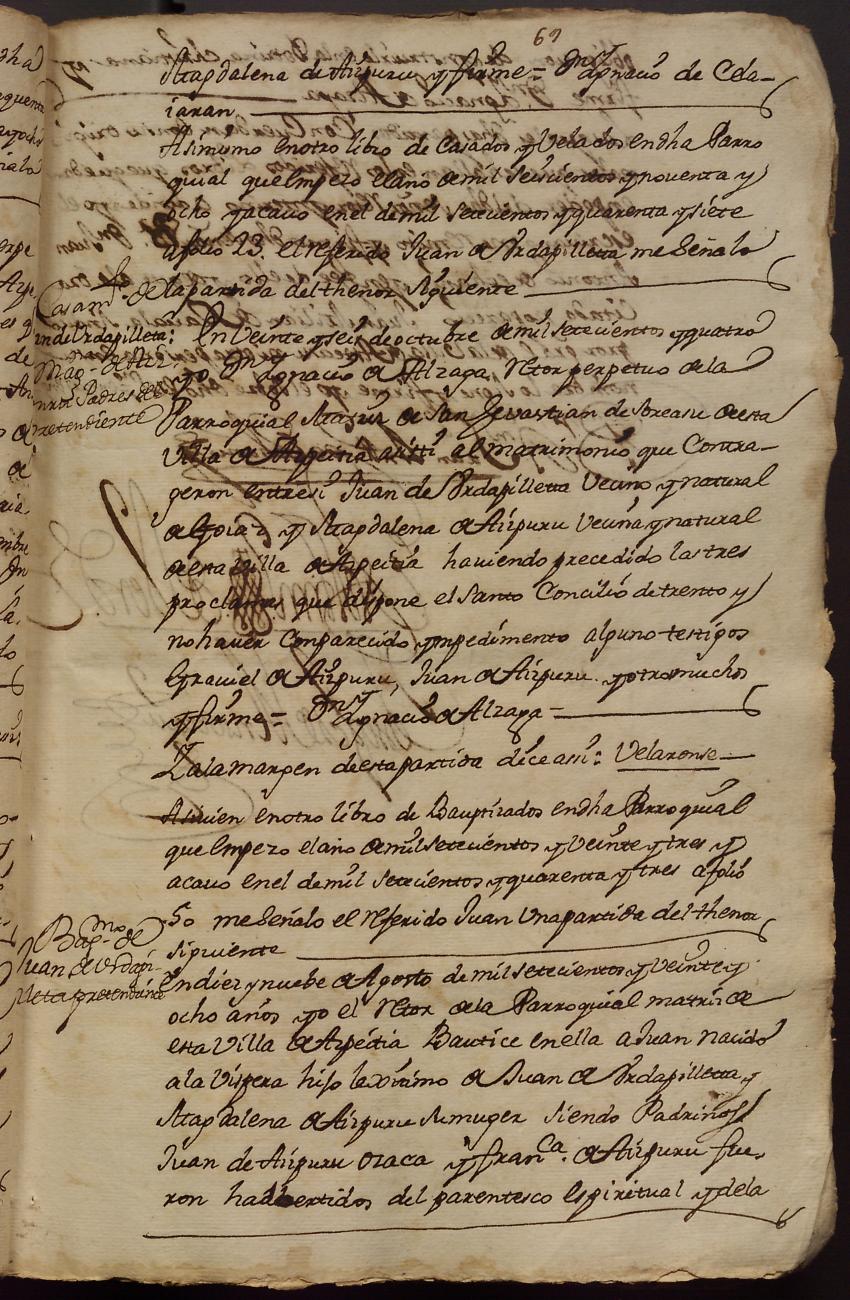 69
Magdalena de Aizpuru y firme = Dn Ygnacio de Cela-
iaran
Asimismo en otro libro de Casados y Velados en dha Parro
quial que Empezo el año de mil Seiscientos y noventa y
ocho y acavo en el de mil setecientos y quarenta y siete
a folio 23. el referido Juan de Urdapilleta me Señalo
la partida del thenor siguiente
Casamto de
Juan de Urdapilleta:
Mag. de Aiz-
puru Padres del
pretendiente
En Veinte y seis de octubre de mil setecientos y quatro
yo Dn Ygnacio de Alzaga, Retor perpetuo de la
Parroquial Matriz de San Sevastian de Soreasu de esta
Villa de Azpeitia asisti al matrimonio que Contra-
geron entre si Juan de Urdapilleta Vecino y natural
de Goiaz y Magdalena de Aizpuru Vecina y natural
de esta villa de Azpeitia haviendo precedido las tres
proclamas que dispone el Santo Concilio de trento y
no haver Comparecido ympedimento alguno testigos
Graviel de Aizpuru, Juan de Aizpuru y otros muchos
y firme = Dn Ygnacio de Alzaga =
Y a la margen de esta partida dice assi: Velaronse
Asi vien en otro libro de Bauptizados en dha Parroquial
que Empezo el año de mil Setecientos y Veinte y tres y
acavo en el de mil setecientos y quarenta y tres a folio
50 me Señalo el referido Juan Una partida del thenor
siguiente
Bapmo de
Juan de Urdapi-
lleta pretendiente
En diez y nuebe de Agosto de mil setecientos y Veinte y
ocho años yo el Retor de la Parroquial matriz de
esta Villa de Azpeitia Bautice en ella a Juan nacido
a la Vispera hijo lexitimo de Juan de Urdapilleta y
Magdalena de Aizpuru su muger Siendo Padrinos
Juan de Aizpuru Oraca y Franca de Aizpuru fue-
ron hadbertidos del parentesco Espiritual y de la